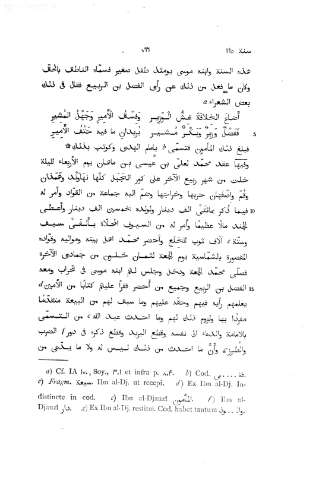 سنة ١٩٥ ٧٩٦
هذه السنة وابنه موسى يومئذ طفل صغير فسماه الناطق بالحق
وكان ما فعل من ذلك عن رأى الفضل بن الربيع فقال فى ذلك
بعض الشعراء
أضاع الخلافة غش الوزير وفسق الأمير وجهل المشير
ففضل وزير وبكر مشير يريدان ما فيه حتف الأمير
فبلغ ذلك المأمون فتسمى بإمام الهدى وكوتب بذلك
وفيها عقد محمد لعلى بن عيسى بن ماهان يوم الأربعاء لليلة
خلت من شهر ربيع الآخر على كور الجبل كلها نهاوند وهمذان
وقم واصفهان حربها وخراجها وضم اليه جماعة من القواد وأمر له
فيما ذكر بمائتى الف دينار ولولده خمسين الف دينار وأعطى
الجند مالا عظيما وأمر له من السيوف المحلاة بألفى سيف
وستة آلاف ثوب للخلع وأحضر محمد اهل بيته ومواليه وقواده
المقصورة بالشماسية يوم الجمعة لثمان خلون من جمادى الآخرة
فصلى محمد الجمعة ودخل وجلس لهم ابنه موسى فى المحراب ومعه
الفضل بن الربيع وجميع من أحضر فقرأ عليهم كتابا من الأمين
يعلمهم رأيه فيهم وحقه عليهم وما سبق لهم من البيعة متقدما
مفردا بها ولزوم ذلك لهم وما احدث عبد الله من التسمى
بالإمامة والدعاء الى نفسه وقطع البريد وقطع ذكره فى دور الضرب
والطرز وأن ما احدث من ذلك ليس له ولا ما يدعى من
a) Cf. IA Boy., ٣٠١ et infra p. ٨٠٤. b) Cod.
c) Fragm. سبعة. Ibn al-Dj. ut recepi. d) Ex Ibn al-Dj. In-
distincte in cod. e) Ibn al-Djauzi المأمون. f) Ibn al-
Djauzi دار. g) Ex Ibn al-Dj. restitui. Cod. habet tantum